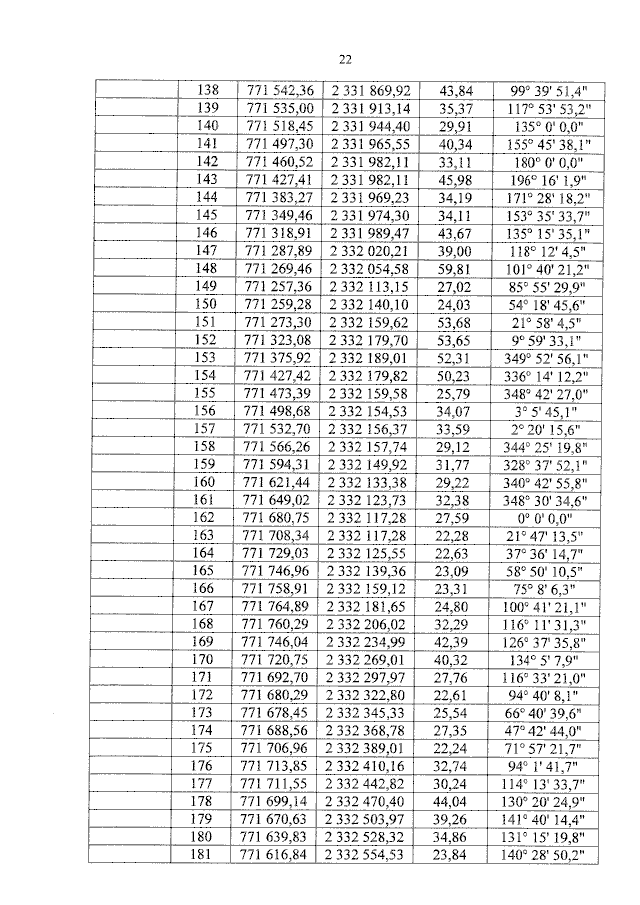 22
138 771 542,36 2 331 869,92 43,84 99° 39' 51,4"
139 771 535,00 2 331 913,14 35,37 117° 53' 53,2"
140 771 518,45 2 331 944,40 29,91 135° 0' 0,0"
141 771 497,30 2 331 965,55 40,34 155° 45' 38,1"
142 771 460,52 2 331 982,11 33,11 180° 0' 0,0"
143 771 427,41 2 331 982,11 45,98 196° 16' 1,9"
144 771 383,27 2 331 969,23 34,19 171° 28' 18,2"
145 771 349,46 2 331 974,30 34,11 153° 35' 33,7"
146 771 318,91 2 331 989,47 43,67 135° 15' 35,1"
147 771 287,89 2 332 020,21 39,00 118° 12' 4,5"
148 771 269,46 2 332 054,58 59,81 101° 40' 21,2"
149 771 257,36 2 332 113,15 27,02 85° 55' 29,9"
150 771 259,28 2 332 140,10 24,03 54° 18' 45,6"
151 771 273,30 2 332 159,62 53,68 21° 58' 4,5"
152 771 323,08 2 332 179,70 53,65 9° 59' 33,1"
153 771 375,92 2 332 189,01 52,31 349° 52' 56,1"
154 771 427,42 2 332 179,82 50,23 336° 14' 12,2"
155 771 473,39 2 332 159,58 25,79 348° 42' 27,0"
156 771 498,68 2 332 154,53 34,07 3° 5' 45,1"
157 771 532,70 2 332 156,37 33,59 2° 20' 15,6"
158 771 566,26 2 332 157,74 29,12 344° 25' 19,8"
159 771 594,31 2 332 149,92 31,77 328° 37' 52,1"
160 771 621,44 2 332 133,38 29,22 340° 42' 55,8"
161 771 649,02 2 332 123,73 32,38 348° 30' 34,6"
162 771 680,75 2 332 117,28 27,59 0° 0' 0,0"
163 771 708,34 2 332 117,28 22,28 21° 47' 13,5"
164 771 729,03 2 332 125,55 22,63 37° 36' 14,7"
165 771 746,96 2 332 139,36 23,09 58° 50' 10,5"
166 771 758,91 2 332 159,12 23,31 75° 8' 6,3"
167 771 764,89 2 332 181,65 24,80 100° 41' 21,1"
168 771 760,29 2 332 206,02 32,29 116° 11' 31,3"
169 771 746,04 2 332 234,99 42,39 126° 37' 35,8"
170 771 720,75 2 332 269,01 40,32 134° 5' 7,9"
171 771 692,70 2 332 297,97 27,76 116° 33' 21,0"
172 771 680,29 2 332 322,80 22,61 94° 40' 8,1"
173 771 678,45 2 332 345,33 25,54 66° 40' 39,6"
174 771 688,56 2 332 368,78 27,35 47° 42' 44,0"
175 771 706,96 2 332 389,01 22,24 71° 57' 21,7"
176 771 713,85 2 332 410,16 32,74 94° 1' 41,7"
177 771 711,55 2 332 442,82 30,24 114° 13' 33,7"
178 771 699,14 2 332 470,40 44,04 130° 20' 24,9"
179 771 670,63 2 332 503,97 39,26 141° 40' 14,4"
180 771 639,83 2 332 528,32 34,86 131° 15' 19,8"
181 771 616,84 2 332 554,53 23,84 140° 28' 50,2"